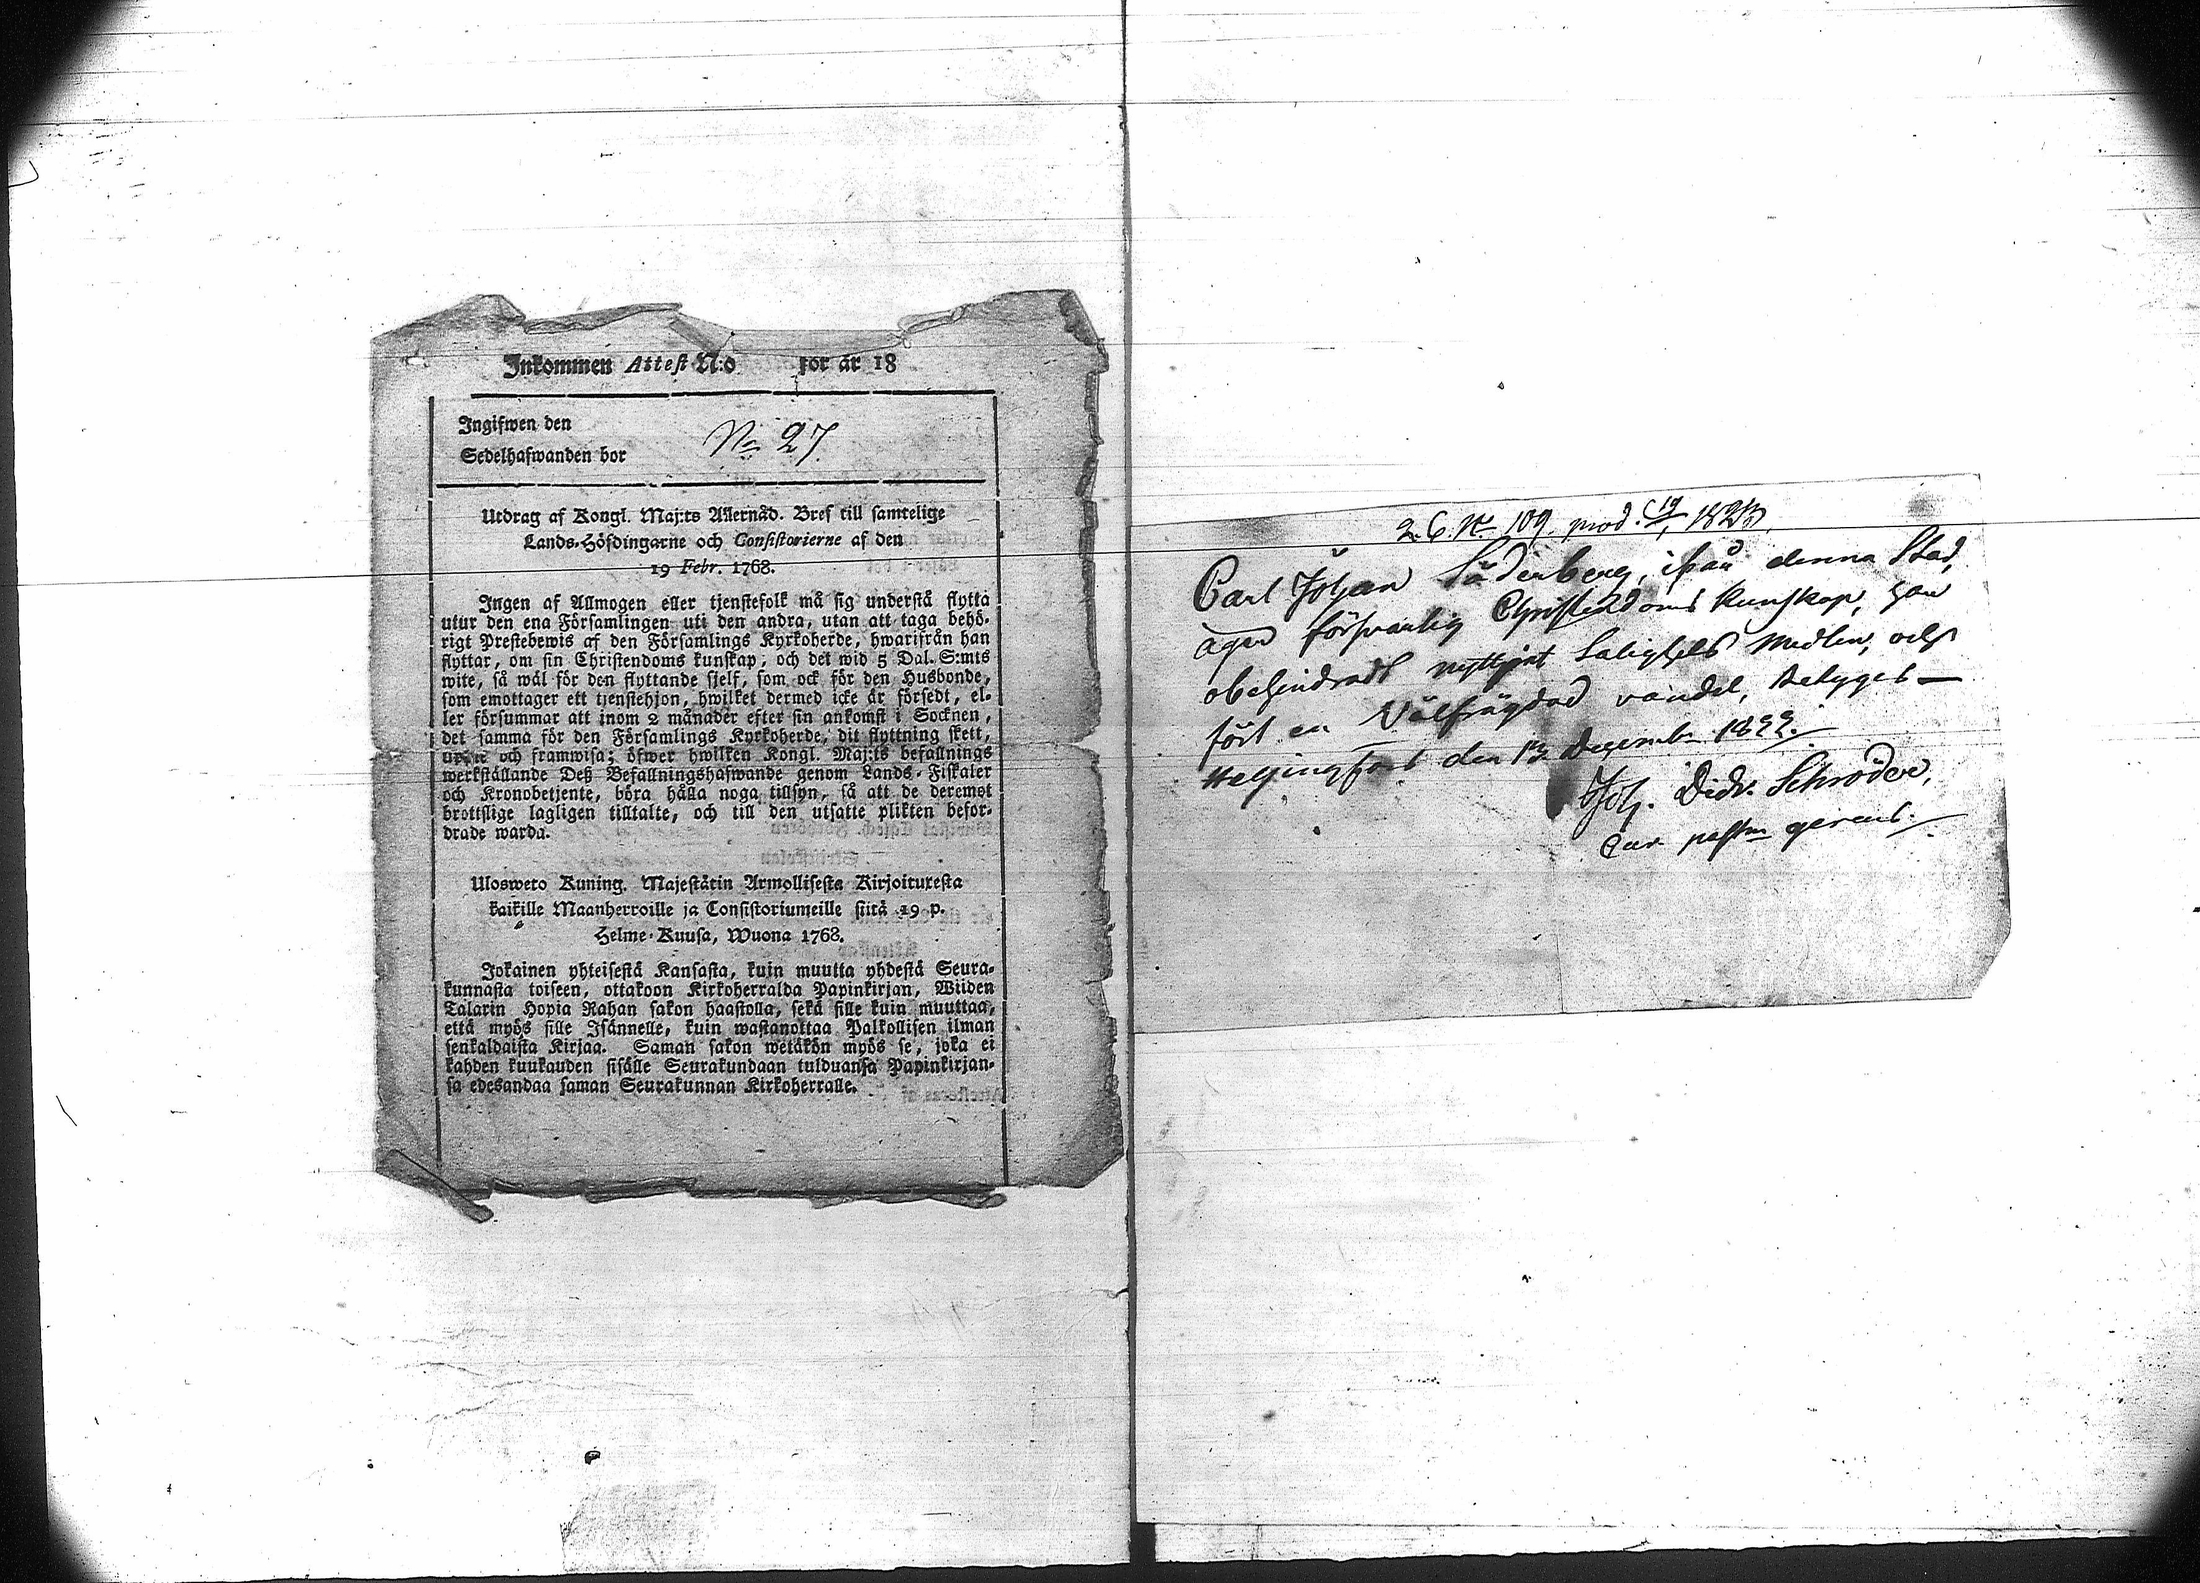 Inkommen Attest N:o för år 18
Ingifwen den
Sedelhafwanden bor
No 27
Utdrag af Kongl. Maj:ts Allernåd. Bref till samtelige
Lands-Höfdingarne och Consistorierne af den
19 Febr. 1768.
Ingen af Allmogen eller tjenstefolk må sig understå flytta
utur den ena Församlingen uti den andra, utan att taga behö-
rigt Prestebewis af den Församlings Kyrkoherde, hwarifrån han
flyttar, om sin Christendoms kunskap, och det wid 5 Dal. S:mts
wite, så wäl för den flyttande sjelf, som ock för den Husbonde,
som emottager ett tjenstehjon, hwilket dermed icke är försedt, el-
ler försummar att inom 2 månader efter sin ankomst i Socknen,
det samma för den Församlings Kyrkoherde, dit flyttning skett,
upte och framwisa; öfwer hwilken Kongl. Maj:ts befallnings
werkställande Deß Befallningshafwande genom Lands-Fiskaler
och Kronobetjente, böra hålla noga tillsyn, så att de deremot
brottslige lagligen tilltalte, och till den utsatte plikten befor-
drade warda.
Ulosweto Kuning. Majestätin Armollisesta Kirjoituxesta
kaikille Maanherroille ja Consistoriumeille siitä 19 p.
Helme-Kuusa, Wuona 1768.
Jokainen yhteisestä Kansasta, kuin muutta yhdestä Seura-
kunnasta toiseen, ottakoon Kirkoherralda Papinkirjan, Wiiden
Talarin Hopia Rahan sakon haastolla, sekä sille kuin muuttaa,
että myös sille Isännelle, kuin wastanottaa Palkollisen ilman
senkaldaista Kirjaa. Saman sakon wetäkön myös se, joka ei
kahden kuukauden sisälle Seurakundaan tulduansa Papinkirjan-
sa edesandaa saman Seurakunnan Kirkoherralle.
109. prod. 19/1 1823.
Carl Johan Söderberg, ifrån denna Stad,
äger försvarlig Christendoms kunskap, har
obehindradt nyttjat Salighets Medlen, och
fört en Välfrägdad vandel, betygas
Helsingfors den 13 December 1822.
Joh. Didr. Schröder,
Cur. past. gerens.